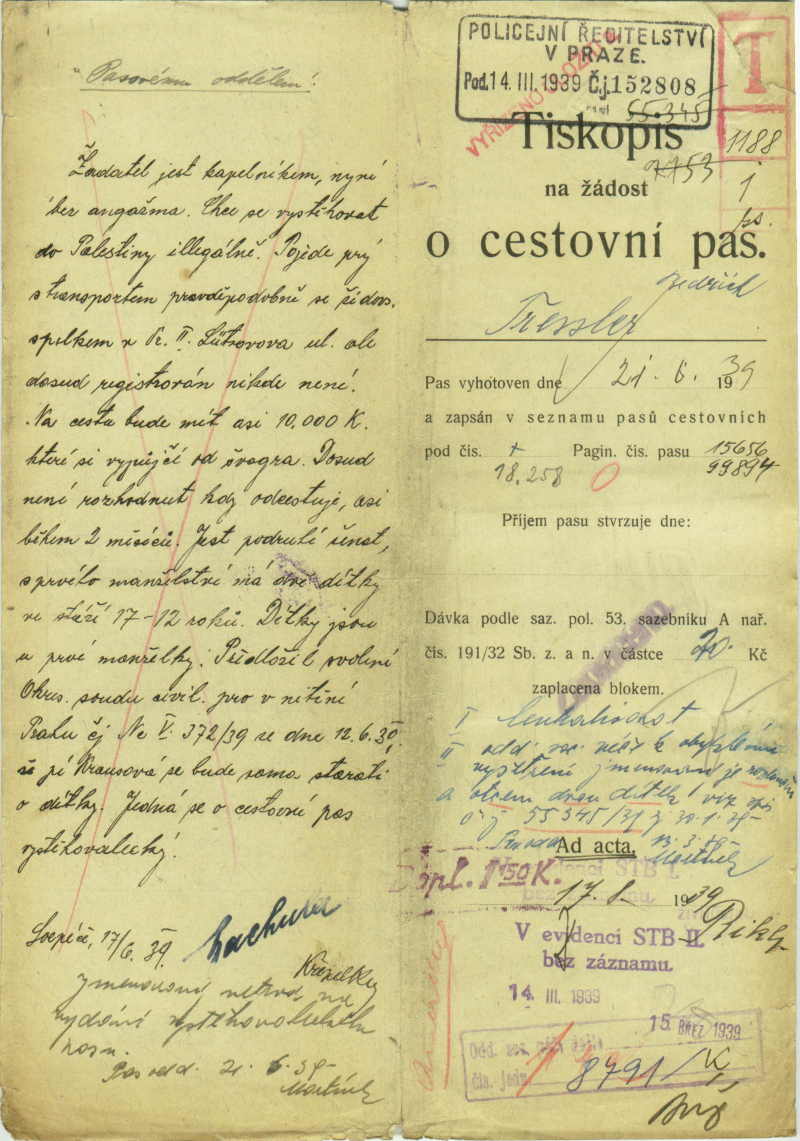 Pasovému oddělení!
Žadatel jest kapelníkem, nyní
bez angažma. Chce se vystěhovat
do Palestiny illegálně. Pojede prý
s transportem pravděpodobně se židovs.
spolkem v Pr. II. Lützovova ul. ale
dosud registrován nikde není.
Na cestu bude mít asi 10.000 K.
které si vypůjčí od švagra. Dosud
není rozhodnut kdy odcestuje, asi
během 2 měsíců. Jest podruhé ženat,
s prvého manželství má dvě dítky
ve stáří 17-12 roků. Dítky jsou
u prvé manželky. Předložil svolení
Okres. soudu civil. pro vnitřní
Prahu čj Nc V. 372/39 ze dne 12.6.39,
že pí Krausová se bude sama starati
o dítky. Jedná se o cestovní pas
vystěhovalecký.
17/6. 39.
Jmenovaný na
vydání vystěhovaleckého
pasu.
Pas. odd. 21. 6. 39
POLICEJNÍ ŘEDITELSTVÍ
V PRAZE.
Pod. 14. III. 1939 Čj. 152808
55.345
T
1188
1
VYŘÍZENO
Tiskopis
7153
na žádost
o cestovní pas.
Jindřich
Tressler
Pas vyhotoven dne 21. 6. 1939
a zapsán v seznamu pasů cestovních
pod čís. + Pagin. čís. pasu 15656
18.258 0 99894
Příjem pasu stvrzuje dne:
Dávka podle saz. pol. 53. sazebníku A nař.
čís. 191/32 Sb. z. a n. v částce 20.- Kč
zaplacena blokem.
I
II odd.
vyšetření jmenovaný je rozveden
a otcem dvou dítek viz
55345/31
Ad acta,
Dopl. 1.50 K.
17.8. 1939
V evidenci STB-II.
bez záznamu.
14. III. 1939
15. BŘEZ 1939
čís. jedn. 8791/